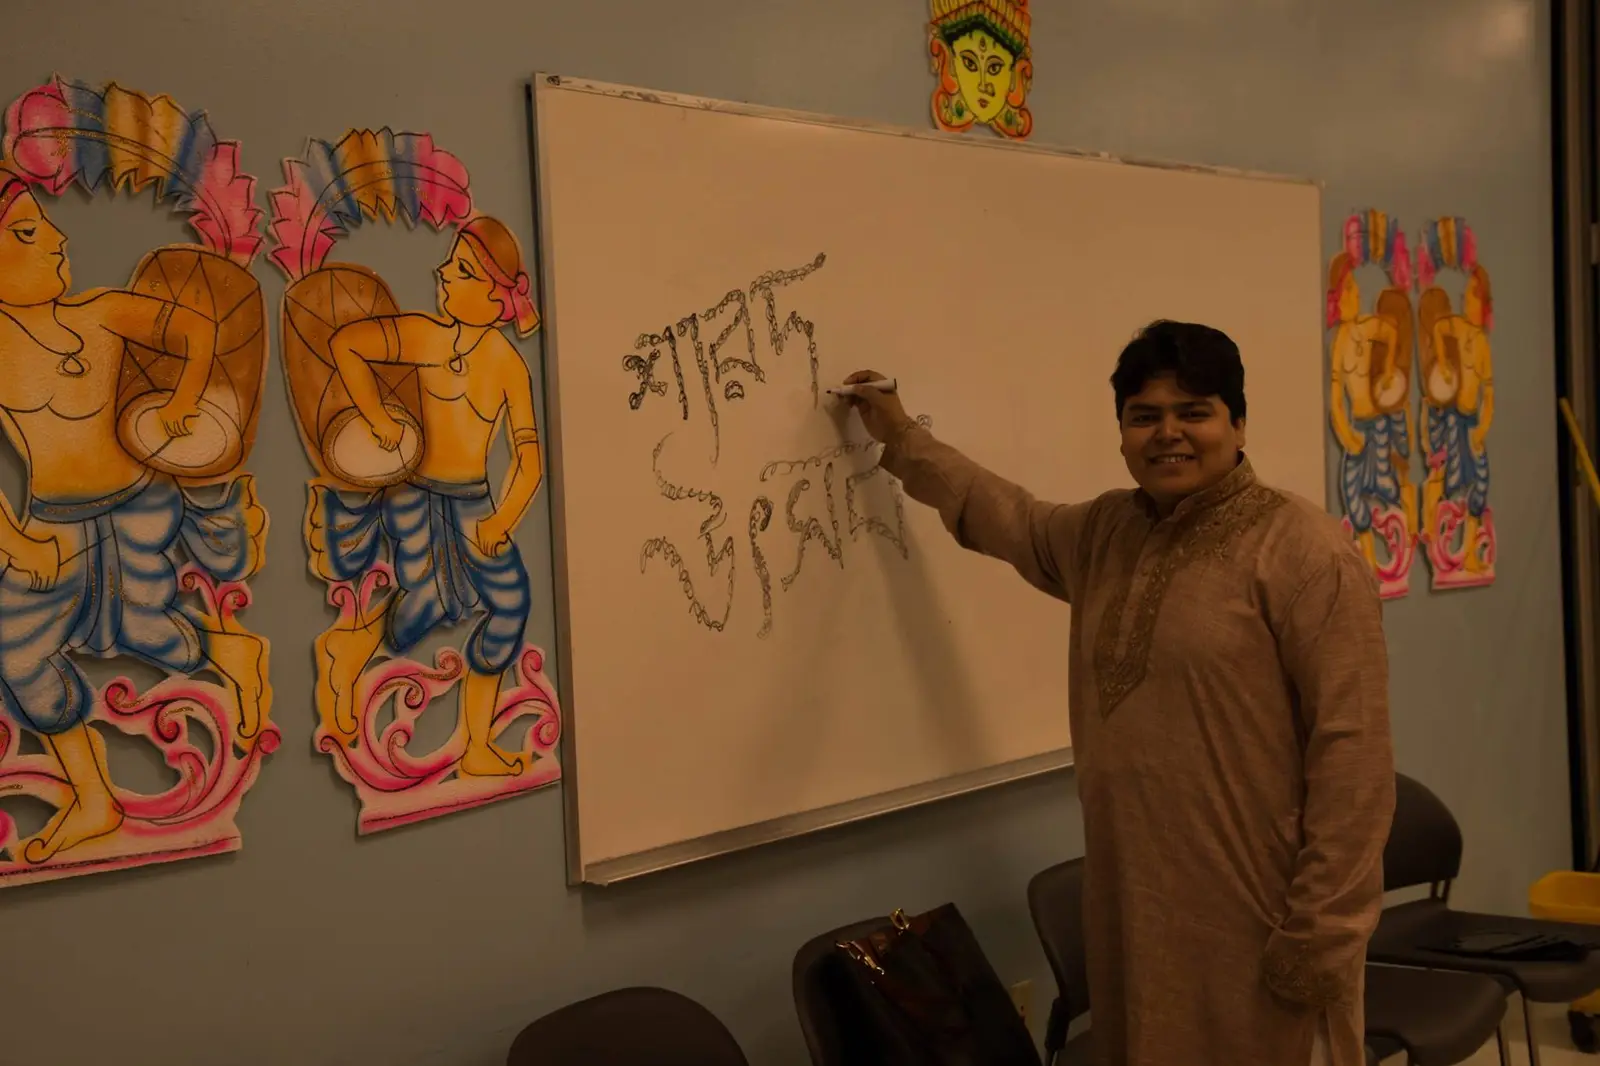 শারদ
উৎসব